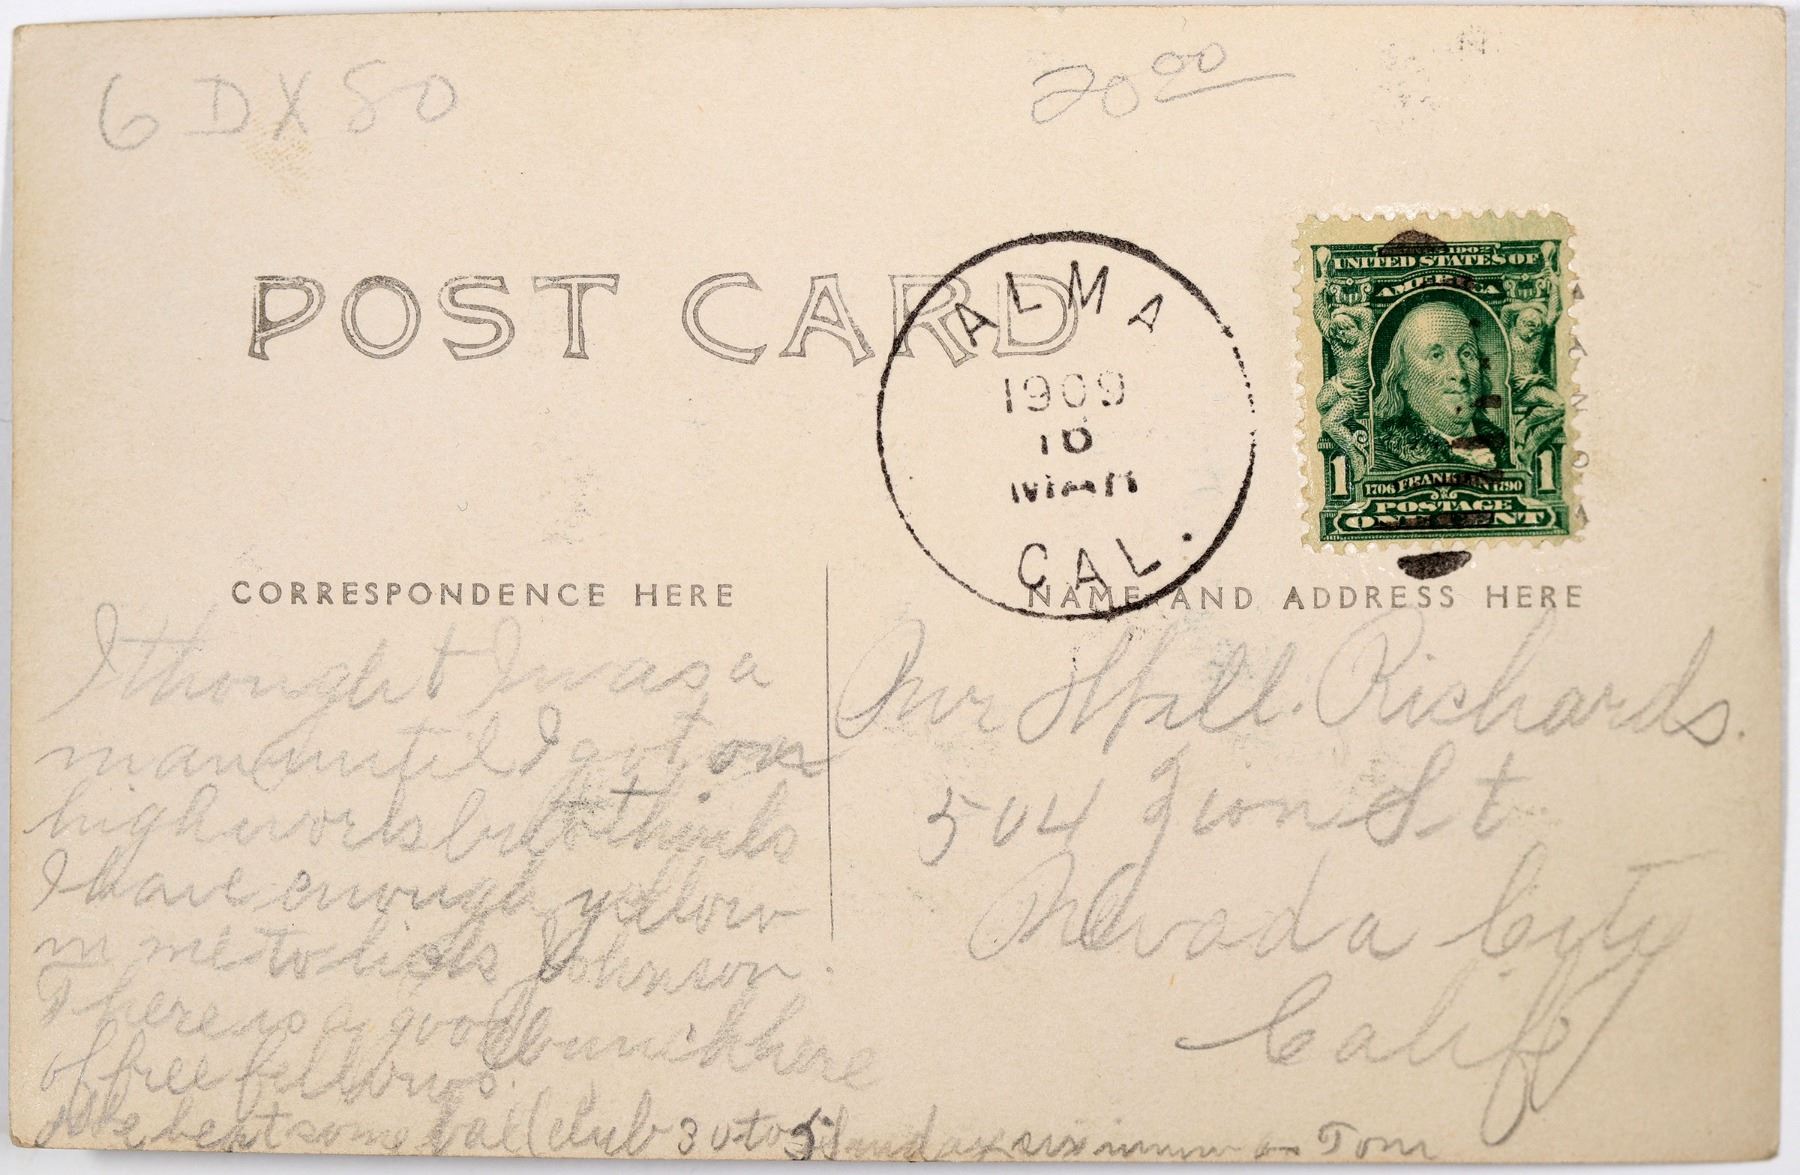 6 DX 80
20 00
POST CARD
ALMA
1909
16
MAR
CAL.
SERIES 1902
UNITED STATES OF
AMERICA
1 1
1706 FRANKLIN 1790
POSTAGE
ONE CENT
CORRESPONDENCE HERE
NAME AND ADDRESS HERE
I thought I was a
man until I got on
high works but think
I have enough yellow
in me to lick Johnson.
There is a good bunch here
of free fellows.
We beat some ball club 30 to 5 Sunday six innings Tom
Mr Will. Richards.
504 Zion St
Nevada City
Calif